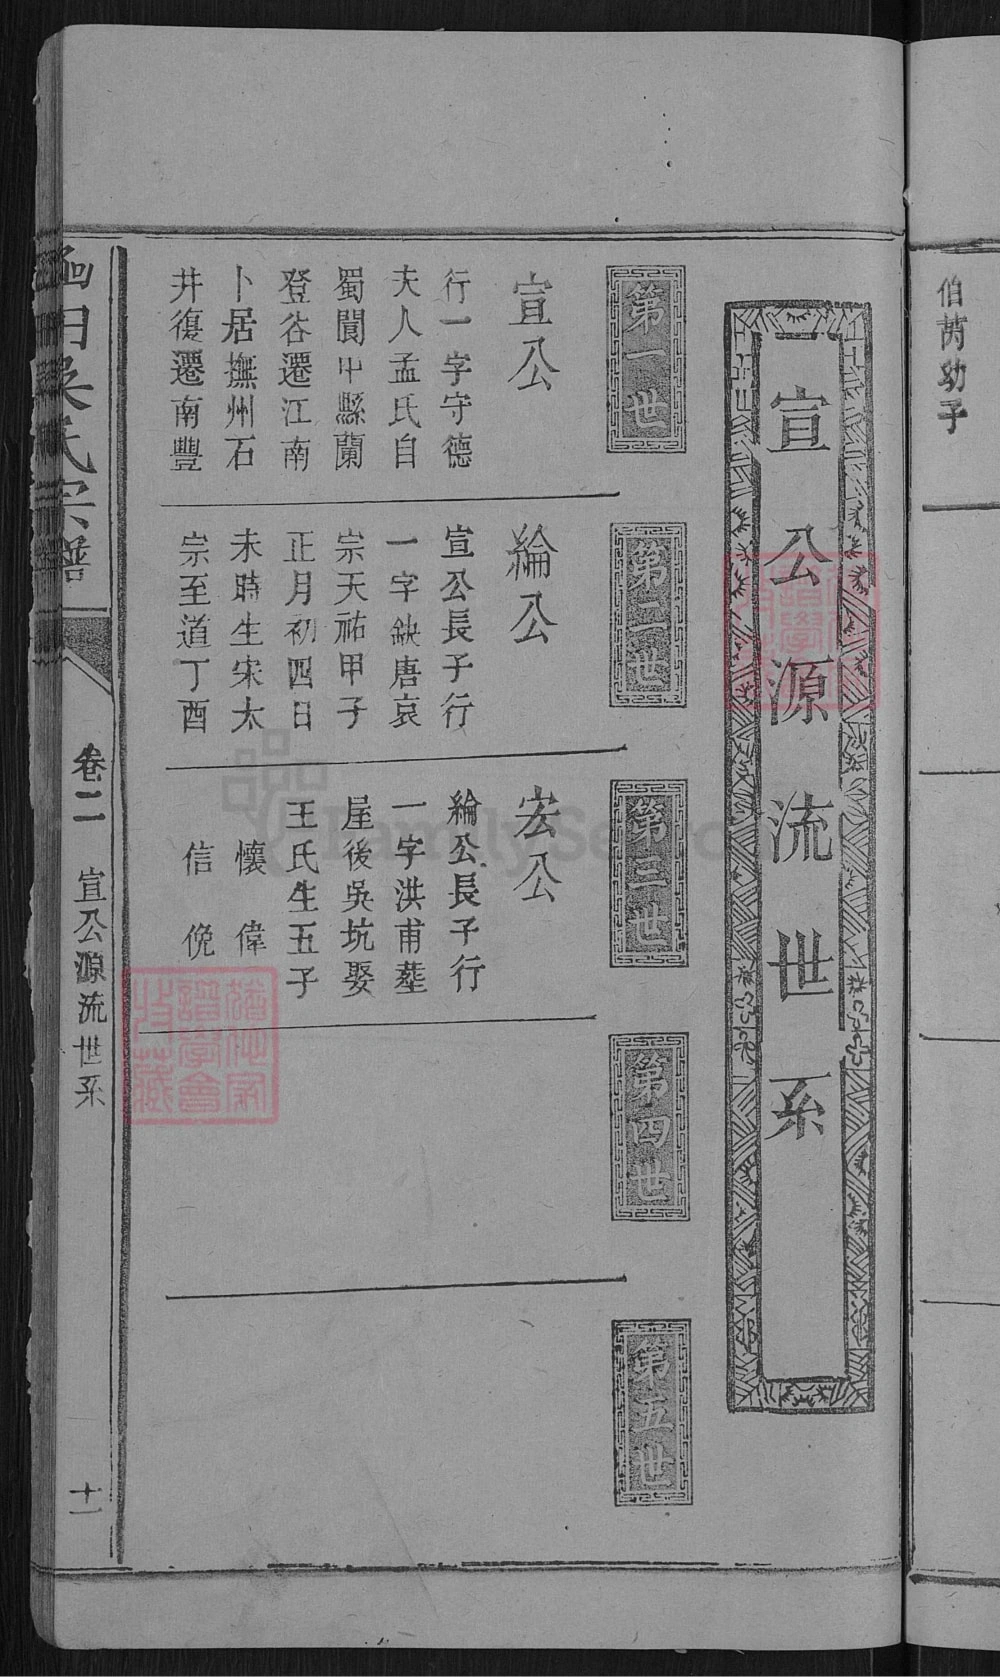 伯芮幼子
宣公源流世系
第一世
宣公
行一字守德
夫人孟氏自
蜀閬中縣蘭
登谷遷江南
卜居撫州石
井復遷南豐
第二世
綸公
宣公長子行
一字缺唐哀
宗天祐甲子
正月初四日
未時生宋太
宗至道丁酉
第三世
宏公
綸公長子行
一字洪甫塟
屋後吳坑娶
王氏生五子
懷 偉
信 俛
第四世
第五世
吳氏宗譜
卷二 宣公源流世系
十一
FamilySearch